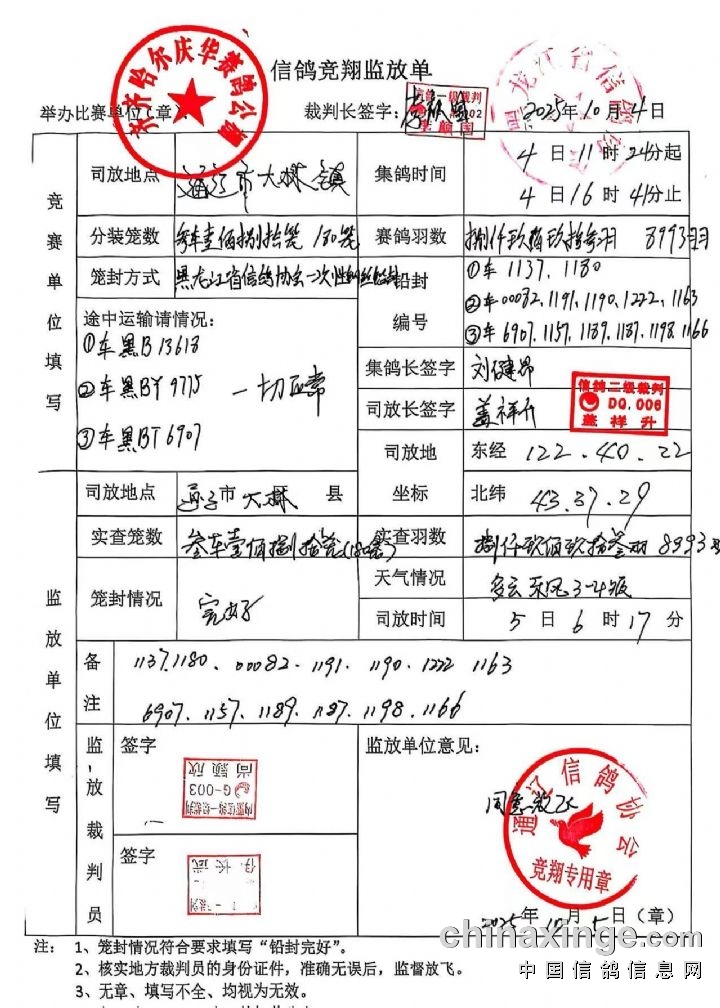 信鸽竞翔监放单
齐齐哈尔庆华赛鸽公棚
龙江省信鸽
举办比赛单位(章):
裁判长签字:
信鸽一级裁判
李颖国
2025年10月4日
竞赛单位填写
司放地点 通辽市大林镇
集鸽时间 4日11时24分起
4日16时41分止
分装笼数 叁车壹佰捌拾笼 180笼
赛鸽羽数 捌仟玖佰玖拾叁羽 8993羽
笼封方式 黑龙江省信鸽协会一次性
铅封编号 ①车 1137、1180
②车00082、1191、1190、1222、1163
③车 6907、1157、1189、1187、1198、1166
途中运输请情况:
①车黑B 13618
②车黑BY 9775 一切正常
③车黑BT 6907
集鸽长签字 刘健昂
司放长签字 盖祥升
信鸽二级裁判
DQ.006
盖祥升
司放地坐标 东经 122.40.22
北纬 43.37.29
监放单位填写
司放地点 通辽市 大林 县
实查笼数 叁车壹佰捌拾笼(180笼)
实查羽数 捌仟玖佰玖拾叁羽 8993羽
笼封情况 完好
天气情况 多云 东风3-4级
司放时间 5日6时17分
备注 1137.1180、00082、1191、1190、1222、1163
6907、1157、1189、1187、1198、1166
监放裁判员
签字
G-003
尚颖欣
签字
监放单位意见:
同意放飞
通辽信鸽协会
竞翔专用章
2025年10月5日(章)
注: 1、笼封情况符合要求填写“铅封完好”。
2、核实地方裁判员的身份证件,准确无误后,监督放飞。
3、无章、填写不全、均视为无效。
chinaxinge.com
中国信鸽信息网